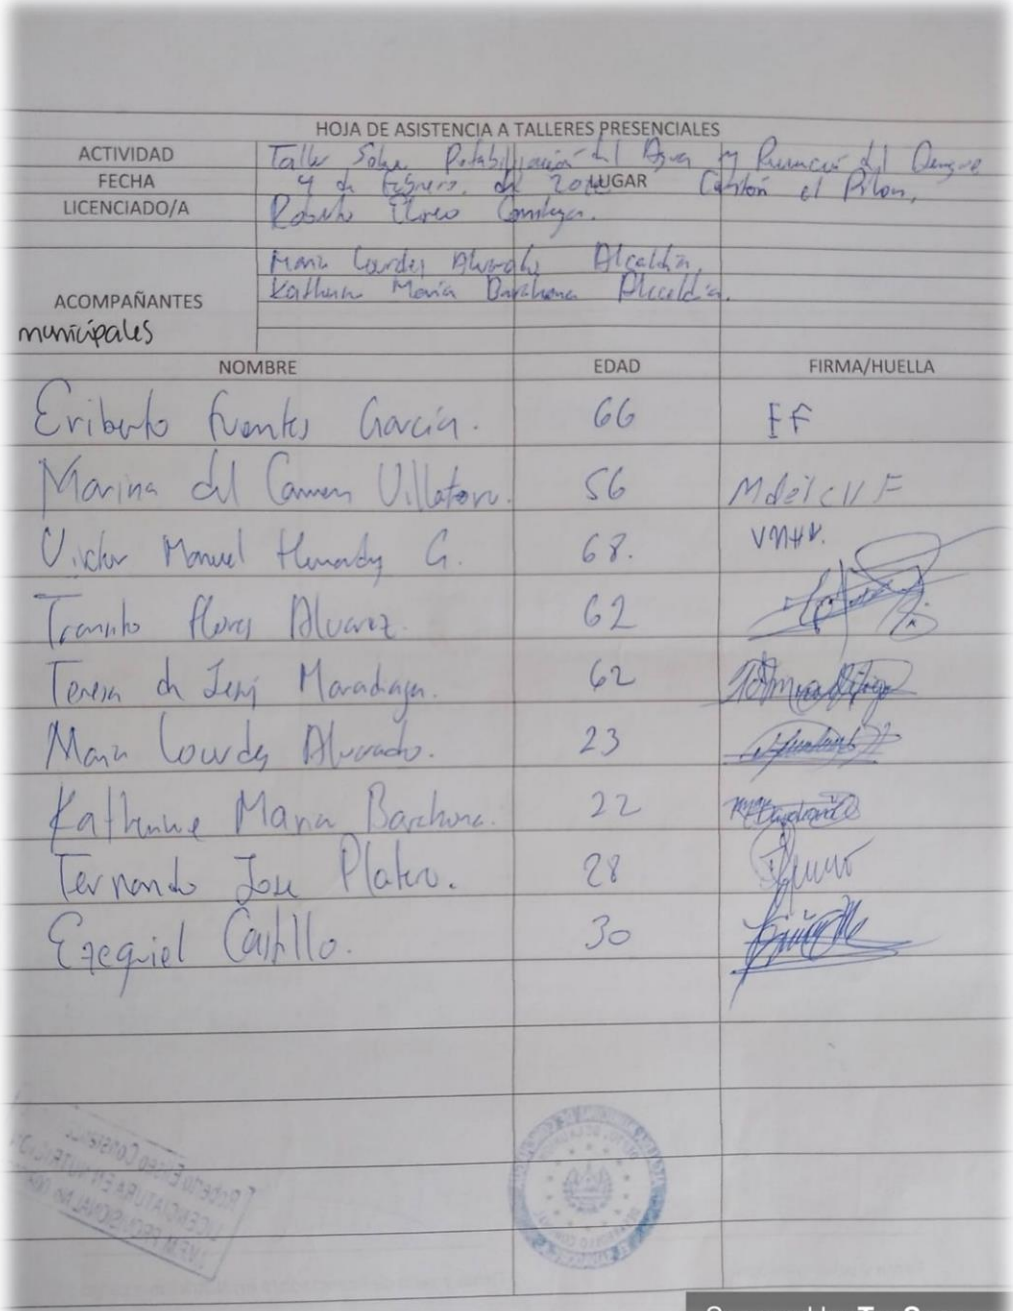 HOJA DE ASISTENCIA A TALLERES PRESENCIALES
ACTIVIDAD Taller Sobre Potabilización del Agua y Prevención del Dengue
FECHA 4 de Febrero, de LUGAR Cantón el Pilon,
LICENCIADO/A Roberto Eliseo
Maria Lourdes Alvarado Alcaldía,
Katherine Maria Barahona Alcaldía.
ACOMPAÑANTES
municipales
NOMBRE EDAD FIRMA/HUELLA
Eriberto Fuentes García. 66 EF
Marina del Carmen Villatoro. 56
Victor Manuel Hernandez G. 68.
Transito Flores Alvarez. 62
Teresa de Jesús Maradiaga. 62
Maria Lourdes Alvarado. 23
Katherine Maria Barahona. 22
Fernando Jose Platero. 28
Ezequiel Castillo. 30